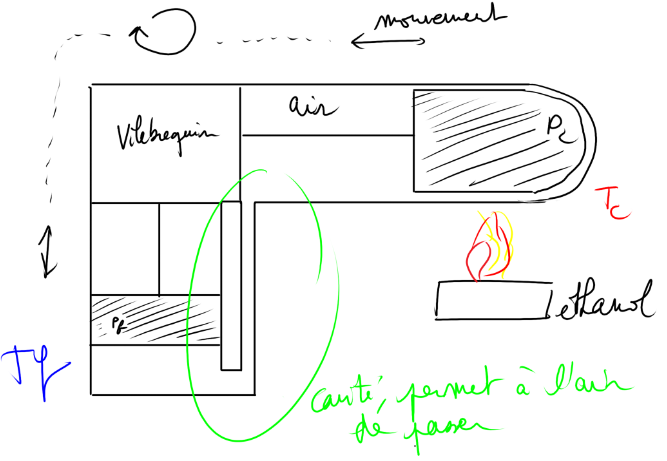 mouvement
air
Vilebrequin
Pc
Tc
ethanol
Pf
Tf
cavité, permet à l'air
de passer